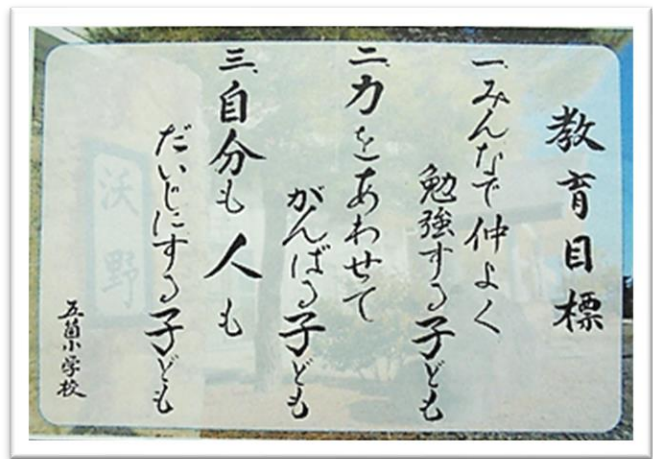 教育目標
一、みんなで仲よく
勉強する子ども
二、力をあわせて
がんばる子ども
三、自分も人も
だいじにする子ども
五箇小学校
沃野